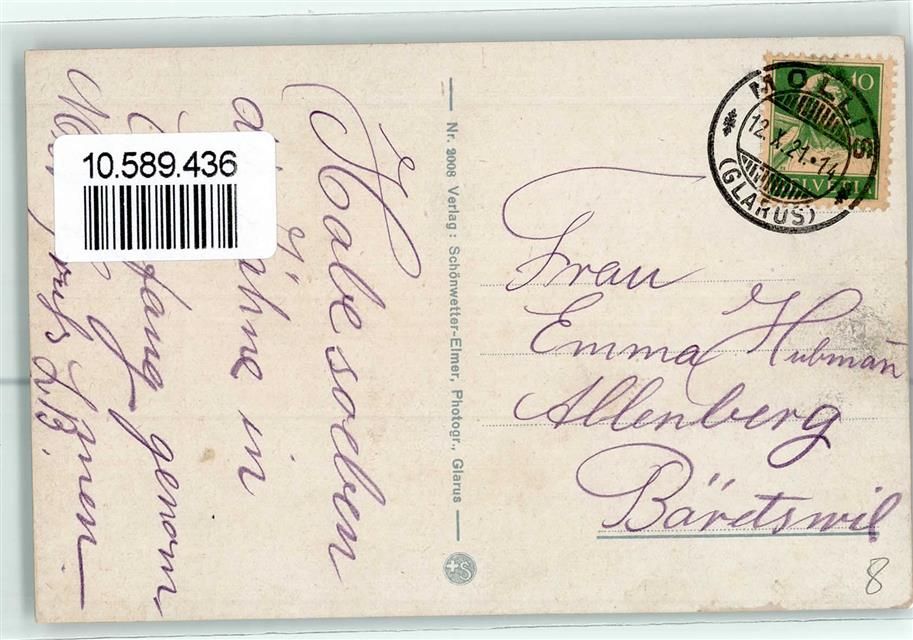 Habe soeben
Zähne in
genom
men
Mit Gruß
10.589.436
Nr. 2008 Verlag: Schönwetter-Elmer, Photogr., Glarus
MOLLIS
12.X.21.14
(GLARUS)
10
HELVETIA
Frau
Emma Hubman
Allenberg
Bäretswil
8